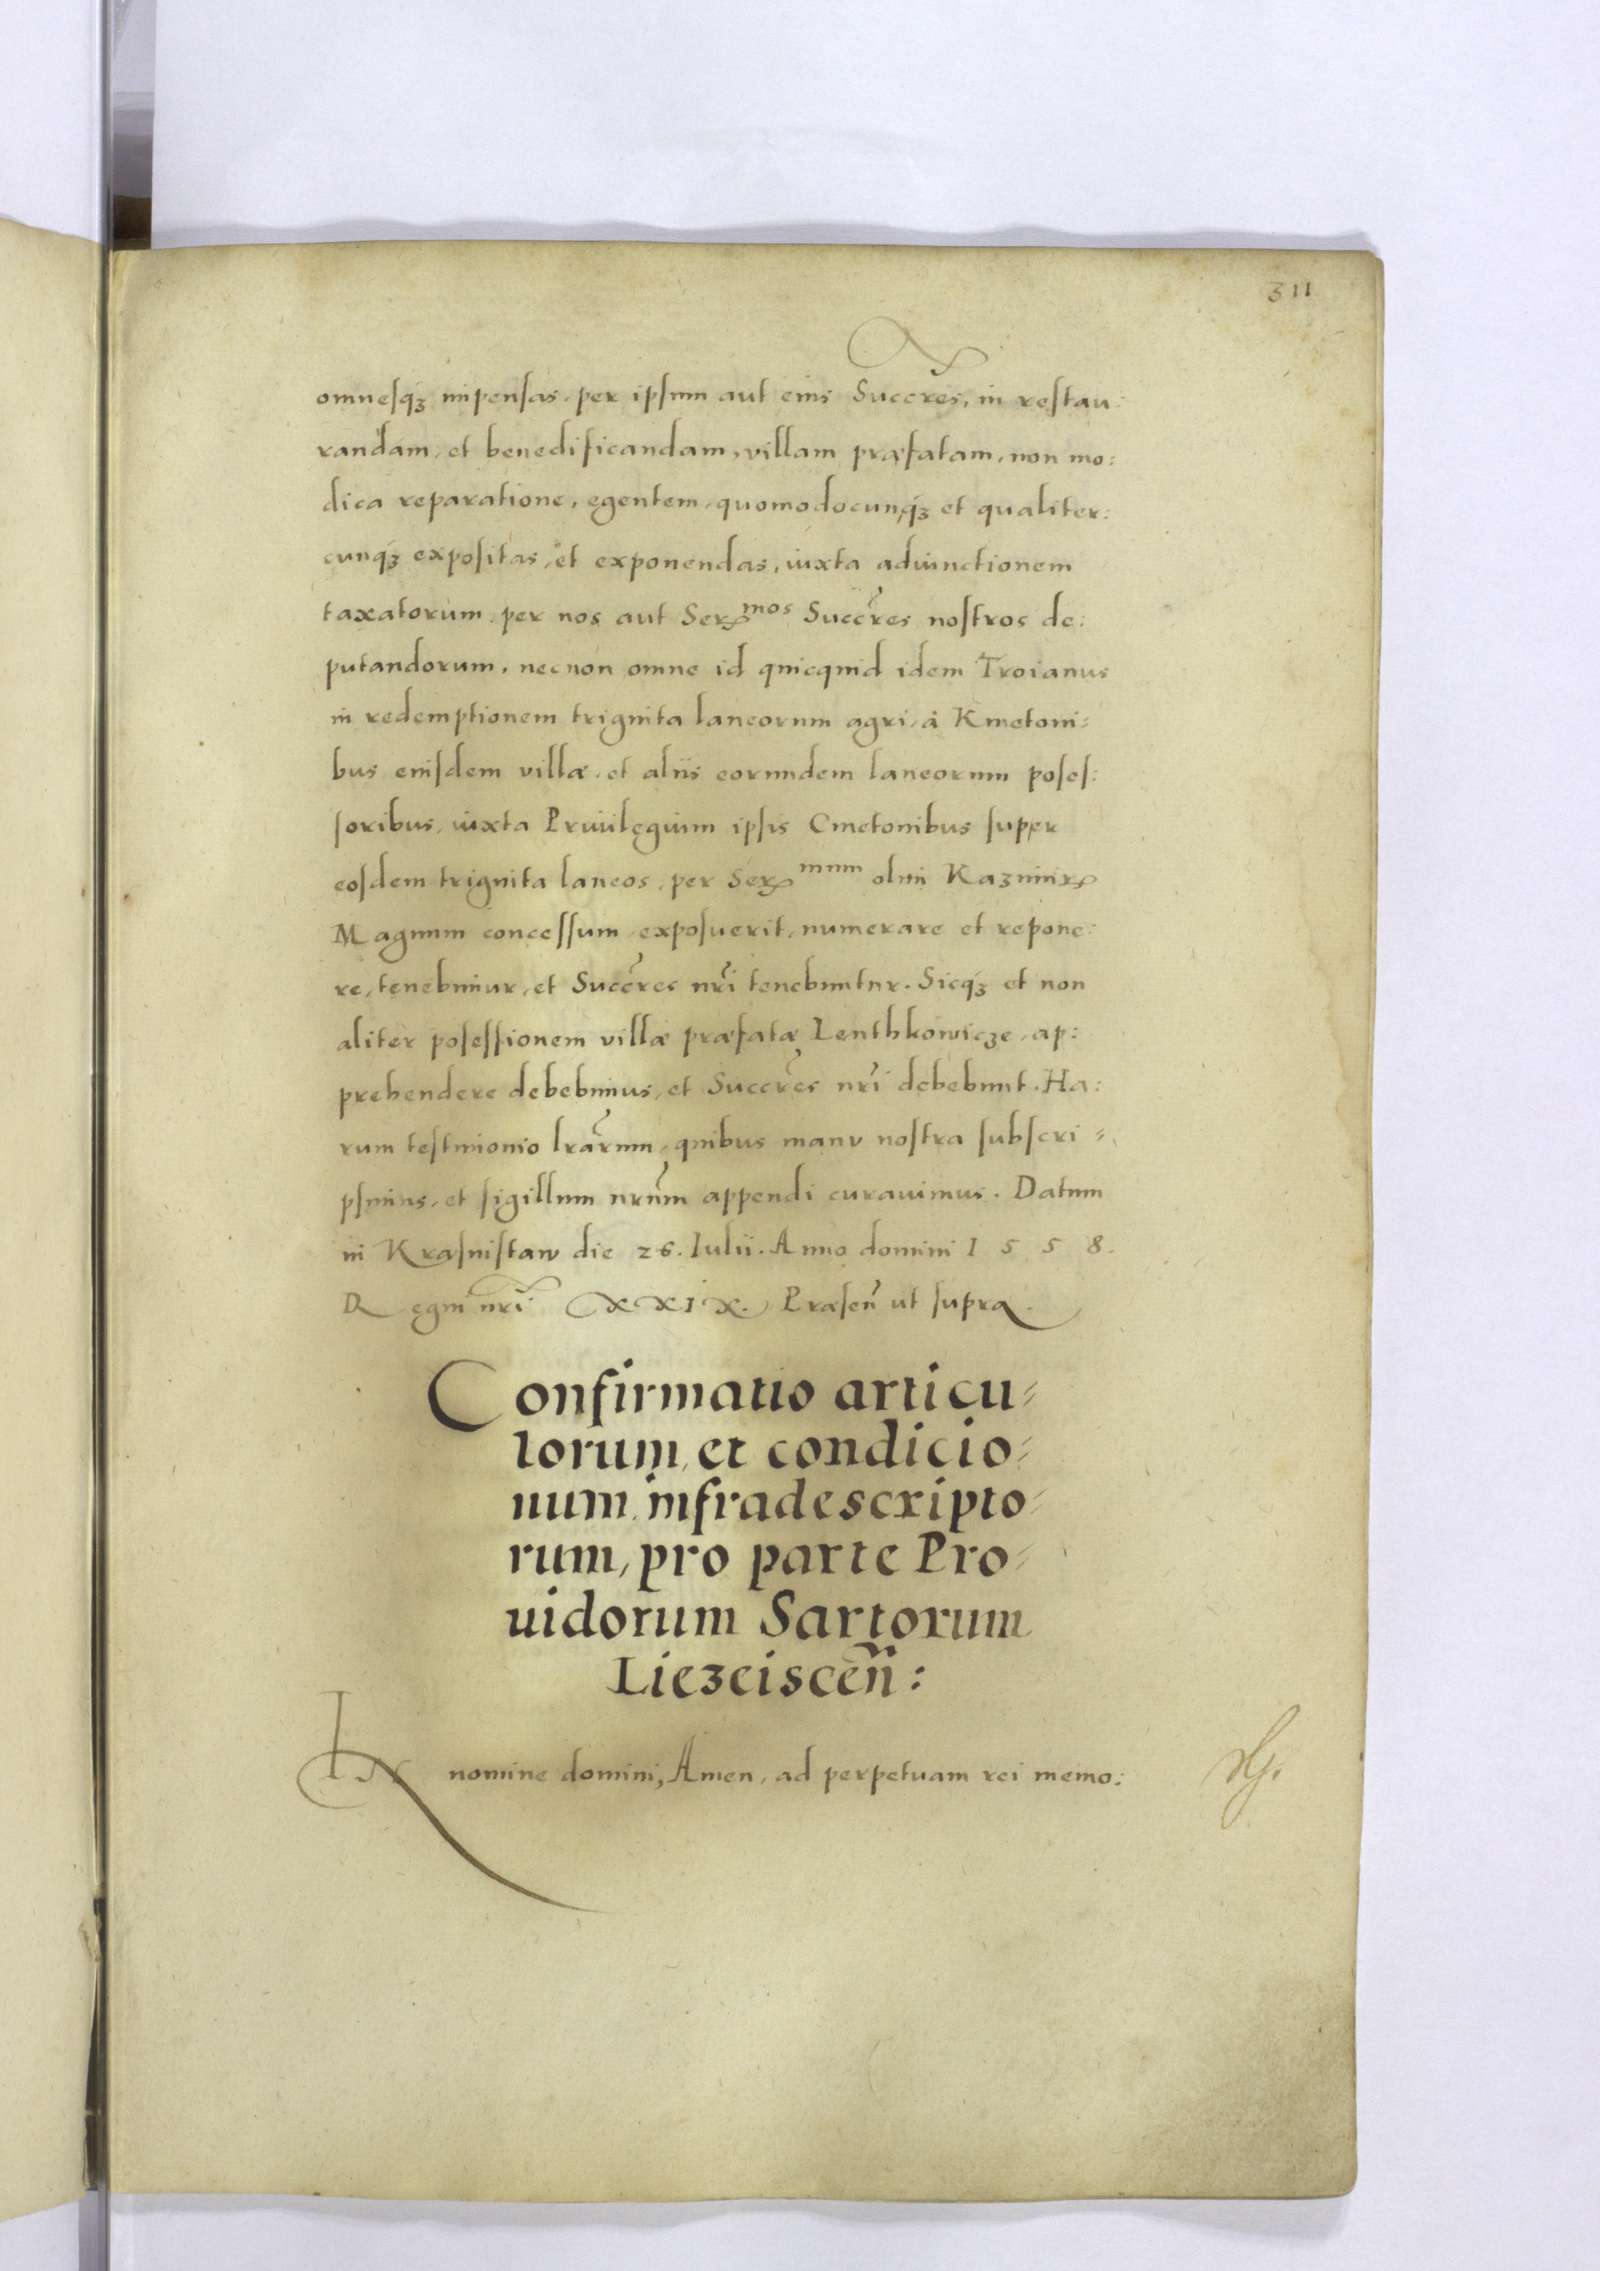 311
omnesq3 impensas, per ipsum aut eius Succres, in restau:
randam, et benedificandam, villam præfatam, non mo:
dica reparatione, egentem, quomodocunq3 et qualiter:
cunq3 expositas, et exponendas, iuxta adiunctionem
taxatorum per nos aut Ser mos Succres nostros de:
putandorum, necnon omne id quicquid idem Troianus
in redemptionem triginta laneorum agri, à Kmetoni:
bus eiusdem villæ, et aliis eorundem laneorum poses:
soribus, iuxta Priuilegium ipsis Cmetonibus super
eosdem triginta laneos, per Ser mum olim Kazimir
Magnum concessum exposuerit, numerare et repone:
re, tenebimur, et Succres nri tenebuntur. Sicq3 et non
aliter posessionem villæ præfatæ Lenthkowicze, ap:
prehendere debebimus, et Succres nri debebunt. Ha:
rum testimonio lrarum, quibus manu nostra subscri:
psimus, et sigillum nrum appendi curauimus. Datum
in Krasnistaw die 26. Iulii. Anno domini 1558.
Regni nri XXIX. Præsen ut supra.
Confirmatio articu:
lorum, et condicio:
num, infradescripto:
rum, pro parte Pro:
uidorum Sartorum
Liezeiscen:
In nomine domini, Amen, ad perpetuam rei memo: